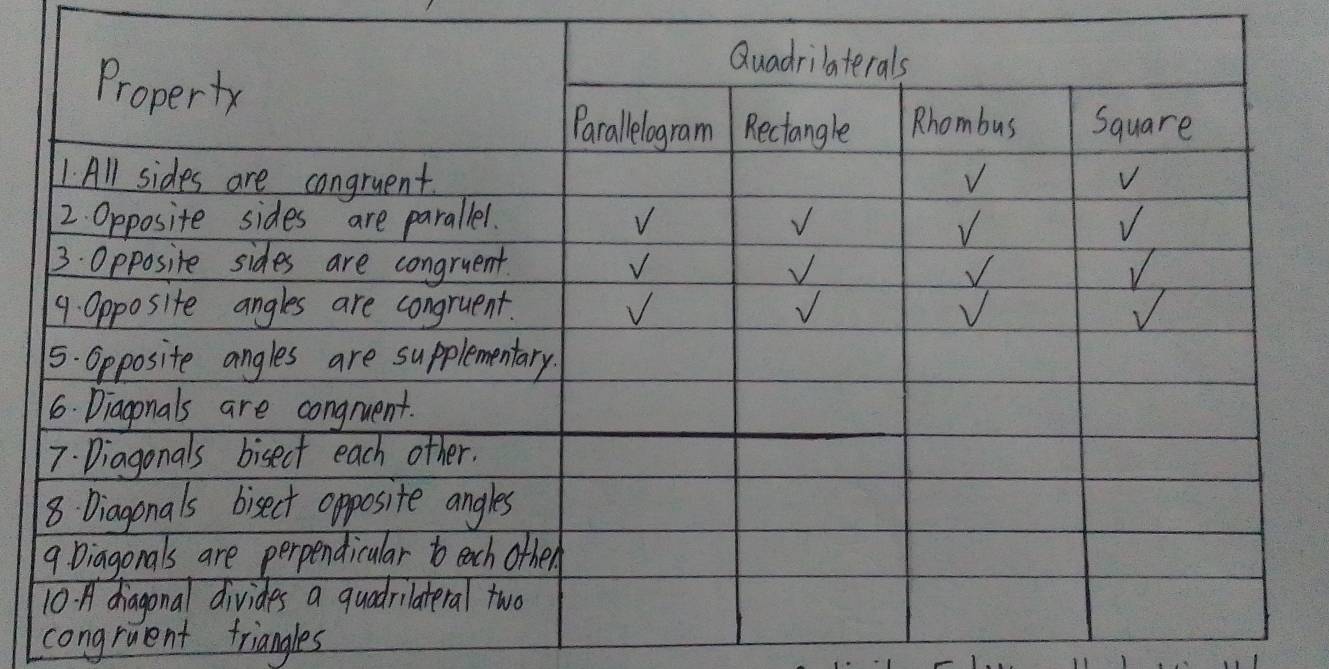 Property
Quadrilaterals
Parallelogram Rectangle Rhombus Square
1. All sides are congruent. ✓ ✓
2. Opposite sides are parallel. ✓ ✓ ✓ ✓
3. Opposite sides are congruent. ✓ ✓ ✓ ✓
4. Opposite angles are congruent. ✓ ✓ ✓ ✓
5. Opposite angles are supplementary.
6. Diagonals are congruent.
7. Diagonals bisect each other.
8. Diagonals bisect opposite angles
9 Diagonals are perpendicular to each other.
10. A diagonal divides a quadrilateral two
congruent triangles